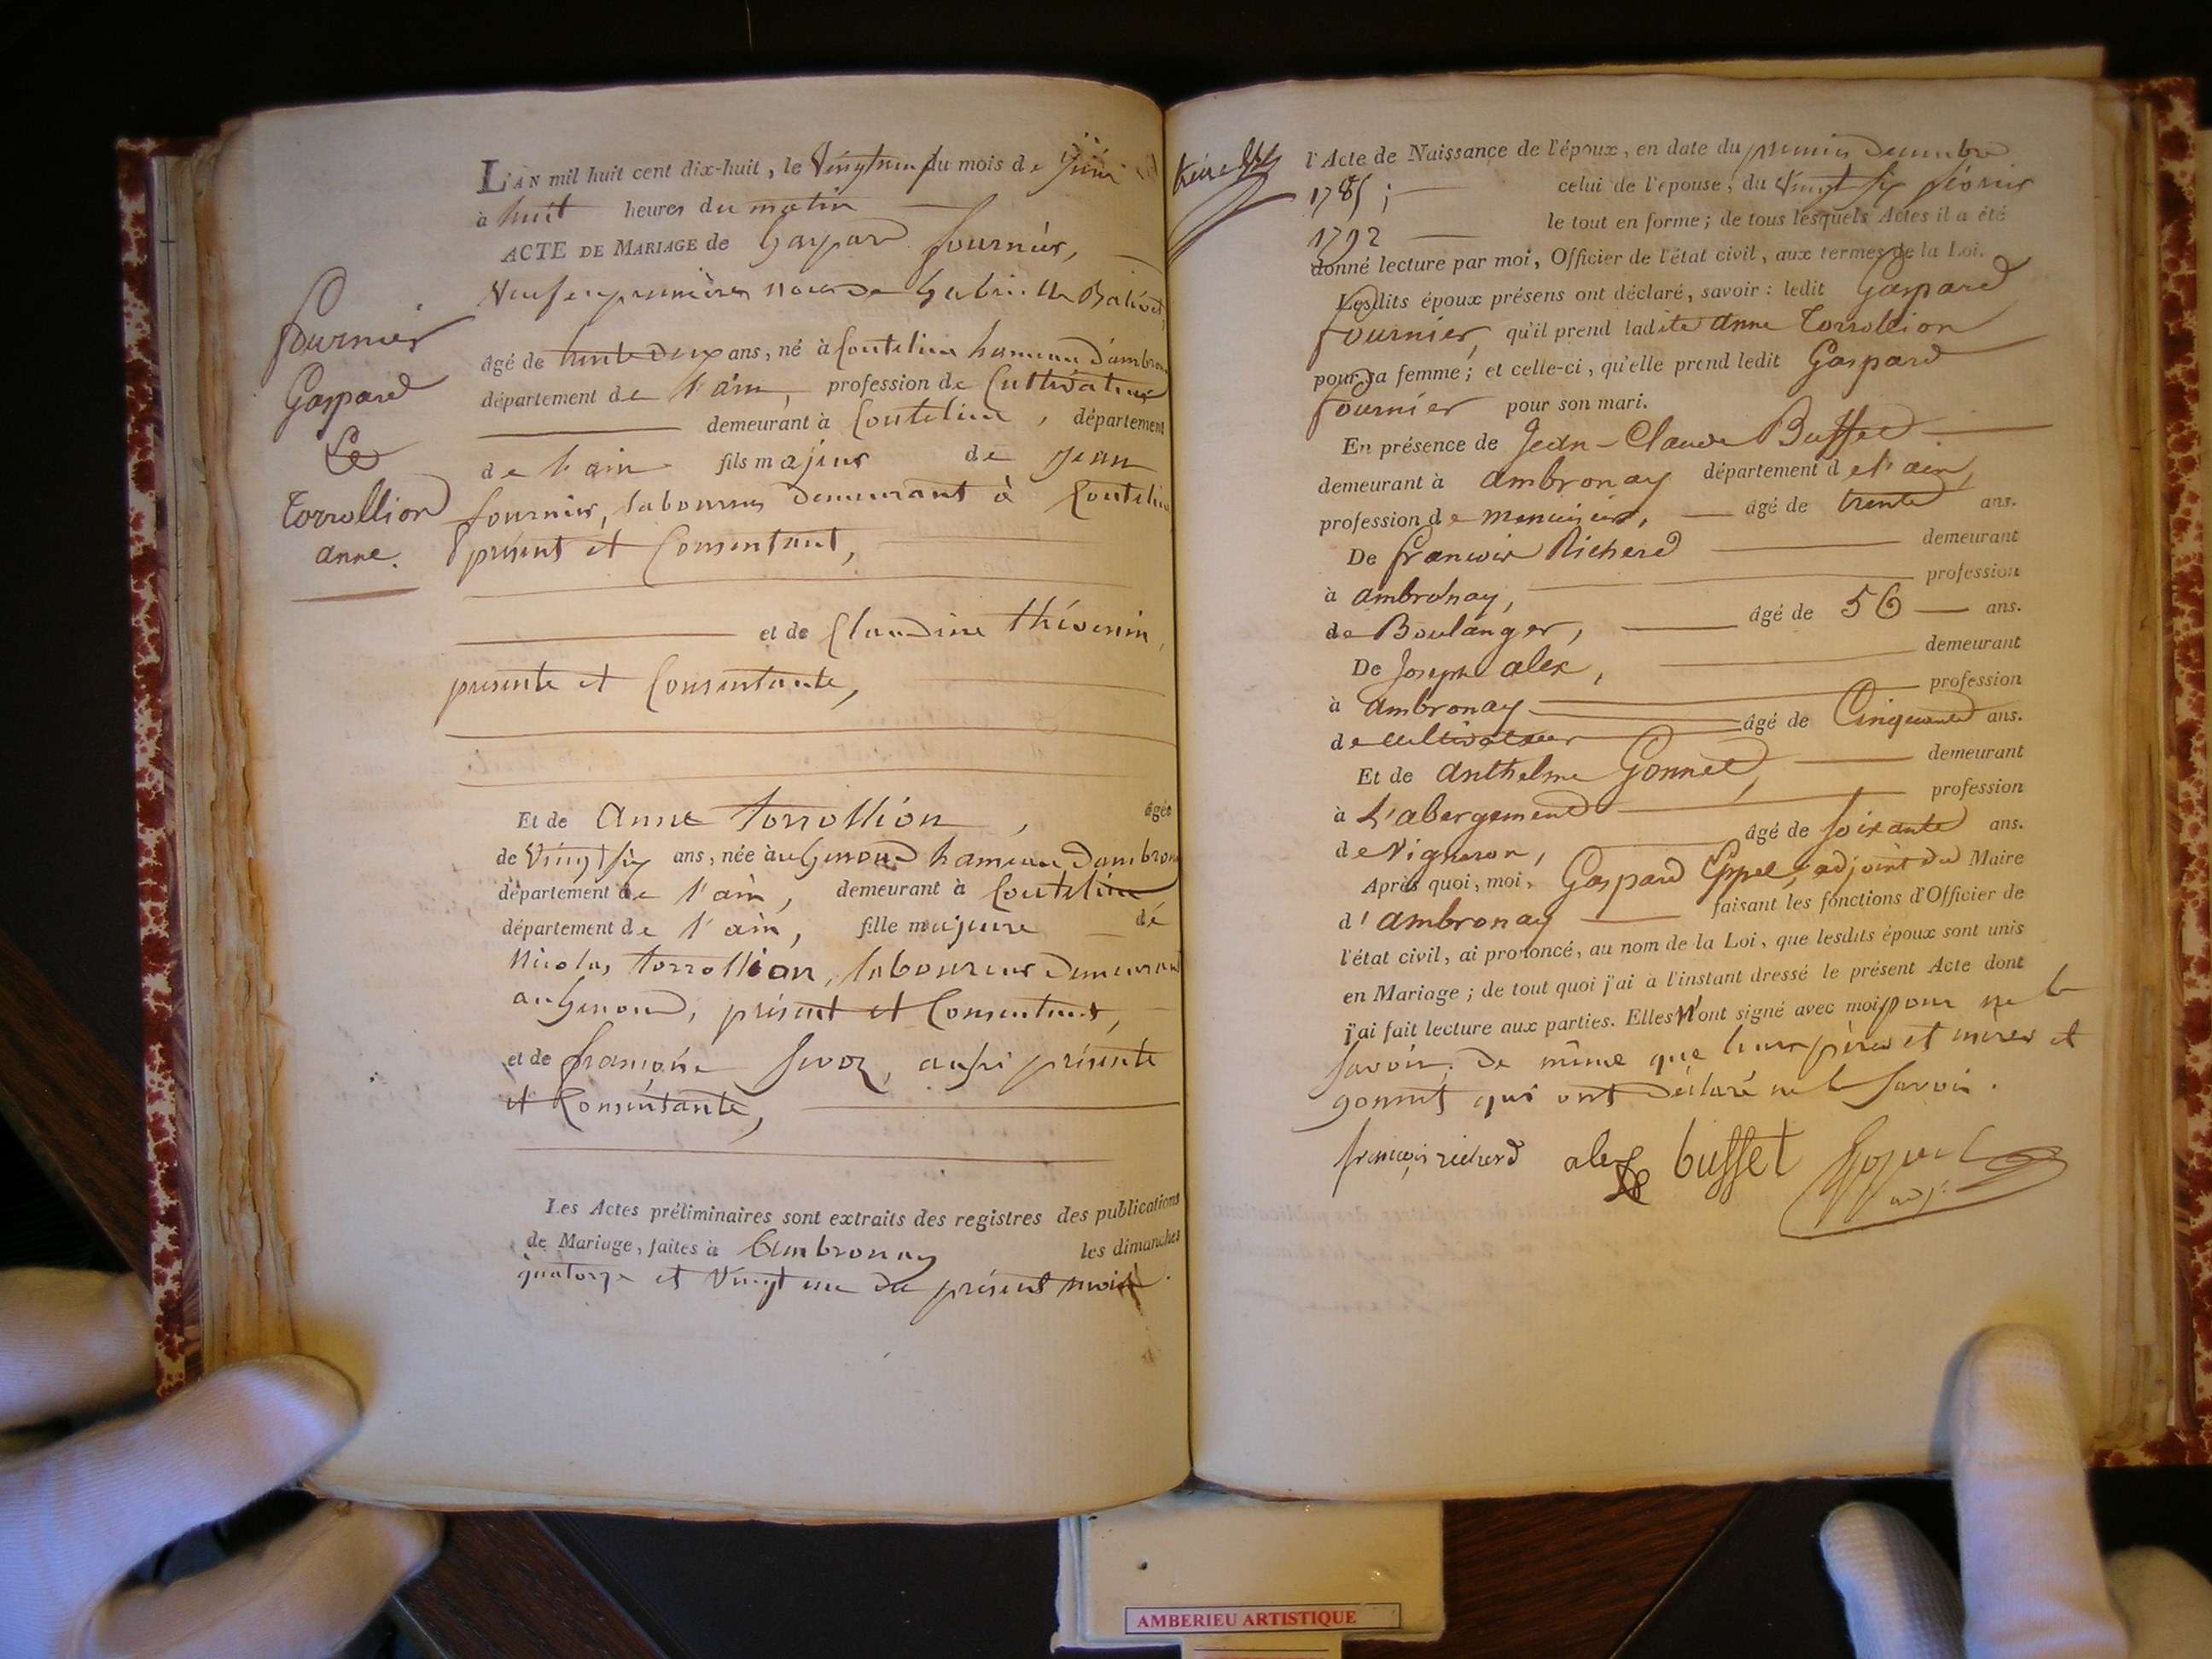 L'AN mil huit cent dix-huit, le Vingtneuf du mois de Juin
à huit heures du matin
ACTE DE MARIAGE de Gaspard fournier,
Veuf en premières noces de Gabrielle
âgé de trente deux ans, né à Coutelieu hameau d'ambron
département de l'ain, profession de Cultivateur
demeurant à Coutelieu, département
de l'ain fils majeur de jean
fournier, laboureur demeurant à Coutelieu
présent et Consentant,
et de Claudine thévenin,
présente et Consentante,
Et de anne torrollion, âgée
de Vingt six ans, née au genoud hameau dambron
département de l'ain, demeurant à Coutelieu
département de l'ain, fille majeure de
Nicolas torrollion, laboureur demeurant
au genoud, présent et Consentant,
et de françoise aussi présente
et Consentante,
Les Actes préliminaires sont extraits des registres des publications
de Mariage, faites à Ambronay les dimanches
quatorze et Vingt un du présent mois.
fournier
Gaspard
Et
torrollion
anne.
l'Acte de Naissance de l'époux, en date du premier decembre
1785; celui de l'épouse, du Vingt six février
1792 le tout en forme; de tous lesquels Actes il a été
donné lecture par moi, Officier de l'état civil, aux termes de la Loi.
Lesdits époux présens ont déclaré, savoir: ledit Gaspard
fournier, qu'il prend ladite anne torrollion
pour sa femme; et celle-ci, qu'elle prend ledit Gaspard
fournier pour son mari.
En présence de Jean-Claude Buffet
demeurant à ambronay département de l'ain,
profession de menuisier, âgé de trente ans.
De francois Richerd demeurant
à ambronay, profession
de Boulanger, âgé de 56 ans.
De Joseph alex, demeurant
à ambronay profession
de cultivateur âgé de Cinquante ans.
Et de anthelme Gonnet, demeurant
à L'abergement profession
de Vigneron, âgé de soixante ans.
Après quoi, moi, Gaspard Eppel, adjoint du Maire
d'ambronay faisant les fonctions d'Officier de
l'état civil, ai prononcé, au nom de la Loi, que lesdits époux sont unis
en Mariage; de tout quoi j'ai à l'instant dressé le présent Acte dont
j'ai fait lecture aux parties. Elles N'ont signé avec moi pour ne le
savoir, de même que leurs pères et mères et
gonnet qui ont déclaré ne le savoir.
françois richerd alex buffet
adj.
AMBERIEU ARTISTIQUE